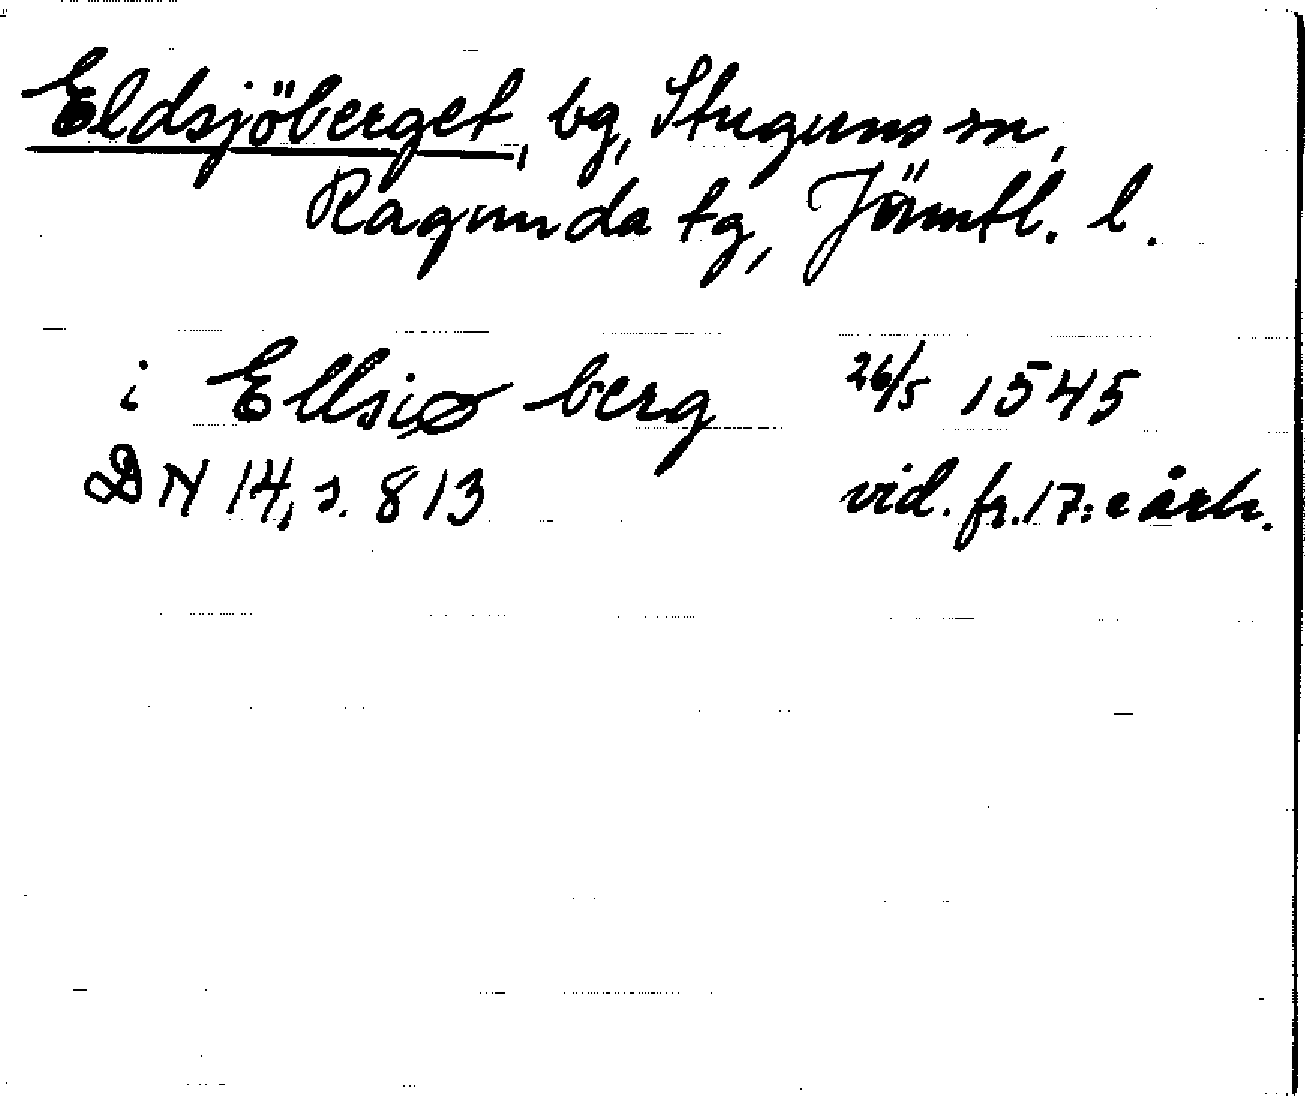 Eldsjöberget, bg, Stuguns sn,
Ragunda tg, Jämtl. l.
i Ellsiø berg 26/5 1545
DN 14, s. 813 vid. fr. 17:e årh.